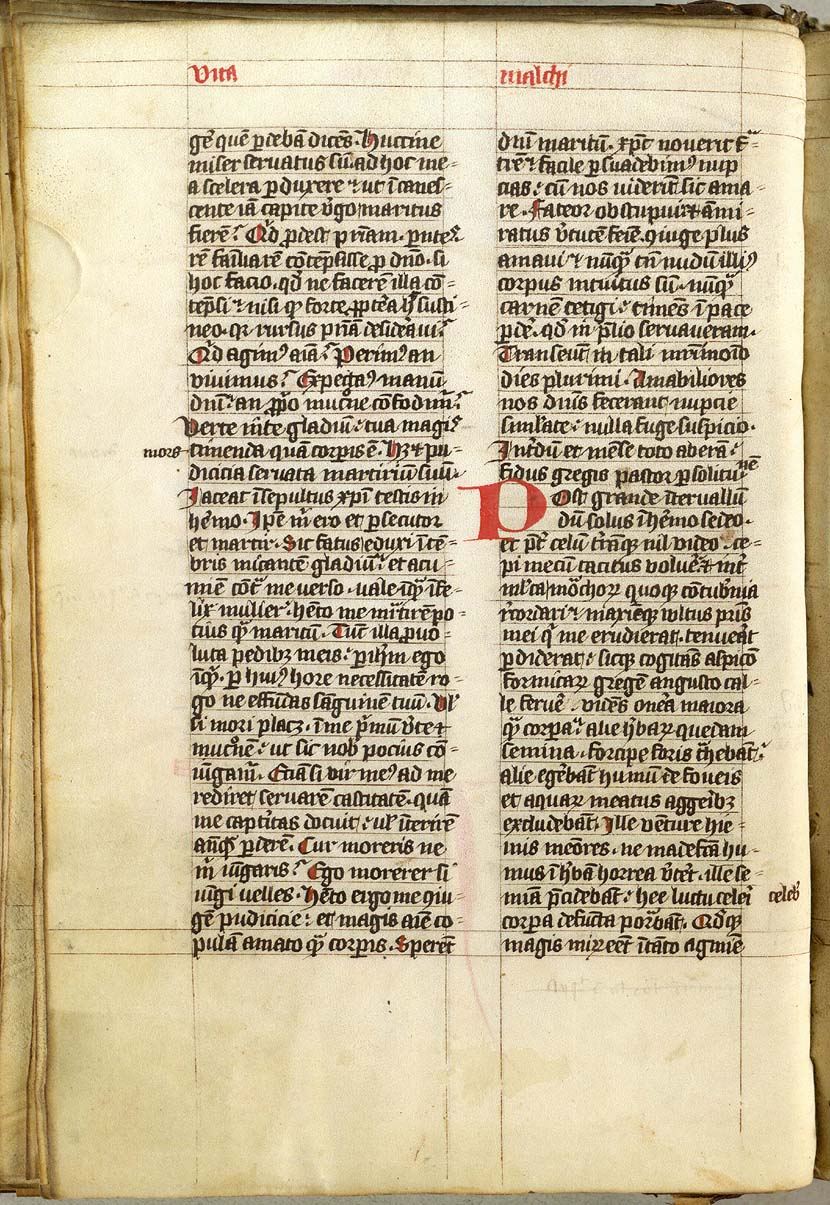 Vita
malchi
gē quē p̄debā dicēs. Huccine
miser servatus sū. ad hoc me⸗
a scelera p̄duxere ⁊ ut ī canes⸗
cente iā capite v̄go maritus
fierē? Qd̄ p̄dest p̄riam. parēte?
rē familiarē cōtēpsisse p̄ dn̄o. si
hoc facio. qd̄ ne facerem illa cō⸗
tēpsi ⁊ nisi qꝫ forte p̄pt̄ea h̄ susti⸗
neo. qr rursus p̄riā desideravi?
Qd̄ agimꝰ aīa? Perimꝰ an
vivimus? Expectaꝰ manū
dn̄i? an p̄p̄o mucrōe confodimꝰ?
Verte in te gladiū: tua magis
mors
timenda quā corpis ē. Hꝫ ⁊ pu⸗
dicicia servata martiriū suū.
Iaceat īsepultus xp̄i testis in
h̄emo. Ip̄e m̄ ero et p̄secutor
et martir. Sic fatus eduxi ī tē⸗
bris micantē gladiū: et acu⸗
mīe cōt̄ me verso. vale īqꝫ īfe⸗
lix mulier. h̄eto me mr̄tirē po⸗
tiꝰ qꝫ maritū. Tūc illa p̄vo⸗
luta pedibꝫ meis: p̄ ih̄m ego
īqꝫ. p̄ huiꝰ hore necessitatē ro⸗
go ne effūdas sāguinem tuū. Vl̄
si mori placꝫ. ī me p̄mū v̄te
mucrōē: ut sic nob pocius cō⸗
iūgam̄. Eciāsi vir meꝰ ad me
rediret servarē castitatē. quā
me captīitas docuit: ul̄ īterirē
anqꝫ p̄derē. Cur moreris ne
m̄ iūgaris? Ego morerer si
iūgi velles. H̄eto ergo me ꝯiu⸗
gē pudicicie: et magis aīe co⸗
pulā amato qꝫ corpis. Sperēt
dn̄i maritū. xp̄c noverit fr̄⸗
trē: facile p̄suadebimꝰ nup
cias: cū nos viderīt sic ama⸗
re. Fateor obstupui: ⁊ āmi⸗
ratus v̄tutē feīe. ꝯiuge plus
amavi: ⁊ nūqꝫ tn̄ nudū illiꝰ
corpus intuitus sū. nūqꝫ
carnē tetigi: timēs ī pace
p̄dē. qd̄ in p̄lio servaveram.
Transeūt in tali mr̄imōio
dies plurimi. Amabiliores
nos dn̄is fecerant nuptie
simulate: nulla fuge suspicio.
Int̄dū et mēse toto aberā:
fidus gregis pastor p̄ solitu⸗nē
Post grande īt̄ervallū
dū solus ī h̄emo sedeo.
et pt̄ celū t̄ramqꝫ nil video. ce⸗
pi mecū tacitus volve. ⁊ int̄
ml̄ta mōchoꝝ quoqꝫ cōtub̄nia
r̄cordari: ⁊ maxīeqꝫ vultus pr̄is
mei qͥ me erudierat. tenuerat
p̄diderat: sicqꝫ cogitās aspico
formicaꝝ gregē angusto cal⸗
le fervē. vides onēa maiora
qꝫ corpa. alie h̄baꝝ quedam
semina. forcipe foris t̄hebāt.
alie eger̄bāt humū de foveis
et aquaꝝ meatus aggeribꝫ
excludebāt. Ille vēture hie⸗
mis meōres. ne madefca hu⸗
mus ī h̄bā horrea v̄tet. ille se⸗
mīa p̄cidebāt: hee luctu celeī
celeb̄
corpa defūcta portābāt. Qd̄qꝫ
magis miꝝ eēt ī tāto agmīe